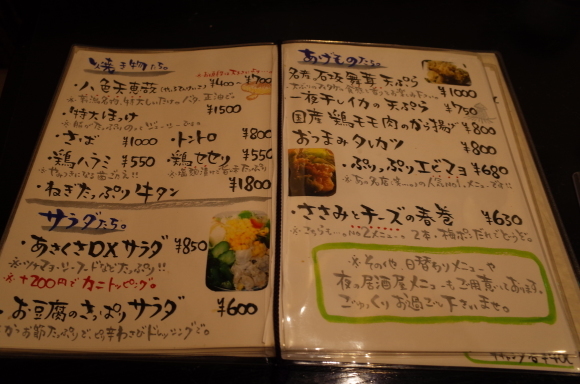 焼き物たち。
・八色天恵茸 ¥400〜¥700
・特大ほっけ ¥1500
・さば ¥1000 ・トントロ ¥800
・鶏ハラミ ¥550 ・鶏セセリ ¥550
・ねぎたっぷり牛タン ¥1800
サラダたち。
・あさくさDXサラダ ¥850
※ツナマヨ・シーフードなどたっぷり!!
※+200円でカニトッピング。
・お豆腐のさっぱりサラダ ¥600
かお節たっぷりでピリ辛わさびドレッシングで。
あげものたち。
名売 石坂舞茸天ぷら ¥1000
一夜干しイカの天ぷら ¥750
国産鶏モモ肉のから揚げ ¥800
おつまみタレカツ ¥800
・ぷりっぷりエビマヨ ¥680
・ささみとチーズの春巻 ¥630
※その他 日替りメニューや
夜の居酒屋メニューもご用意しております。
ごゆっくりお過ごし下さいませ。